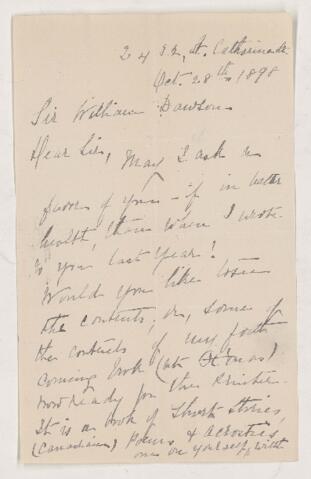 2452, St. Catherine St.
Oct. 28th 1898
Sir William Dawson
Dear Sir, May I ask a
favor of you - if in better
health, than when I wrote
to you last Year?
Would you like to see
the contents, or, some of
the contents of my forth
coming book (
now ready for the Printer.
It is an book of Short Stories,
(Canadian) Poems & Acrostics,
one on yourself, with